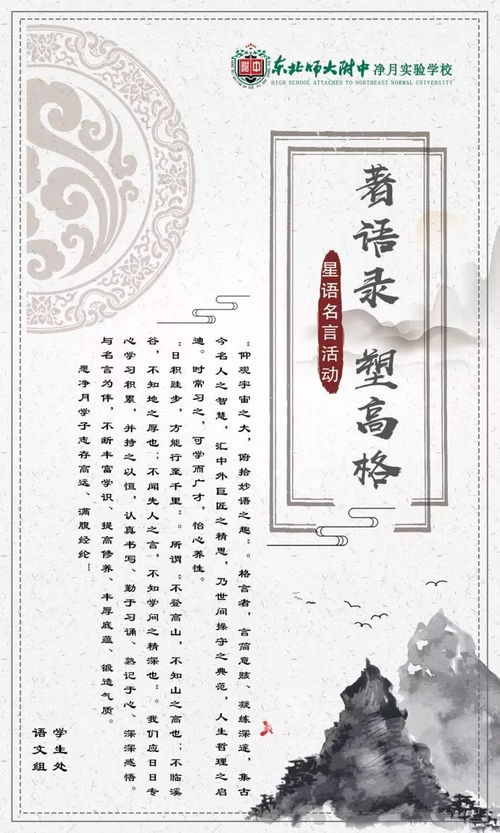 附中
东北师大附中 净月实验学校
HIGH SCHOOL ATTACHED TO NORTHEAST NORMAL UNIVERSITY
著语录 塑高格
星语名言活动
“仰观宇宙之大，俯拾妙语之趣”。格言者，言简意赅、凝练深邃，集古
今名人之智慧，汇中外巨匠之精思，乃世间操守之典范，人生哲理之启
迪。时常习之，可学而广才，怡心养性。
“日积跬步，方能行至千里”。所谓“不登高山，不知山之高也；不临溪
谷，不知地之厚也；不闻先人之言，不知学问之精深也”。我们应日日专
心学习积累，并持之以恒，认真书写、勤于习诵、熟记于心、深深感悟。
与名言为伴，不断丰富学识、提高修养、丰厚底蕴、锻造气质。
愿净月学子志存高远、满腹经纶…
学生处
语文组